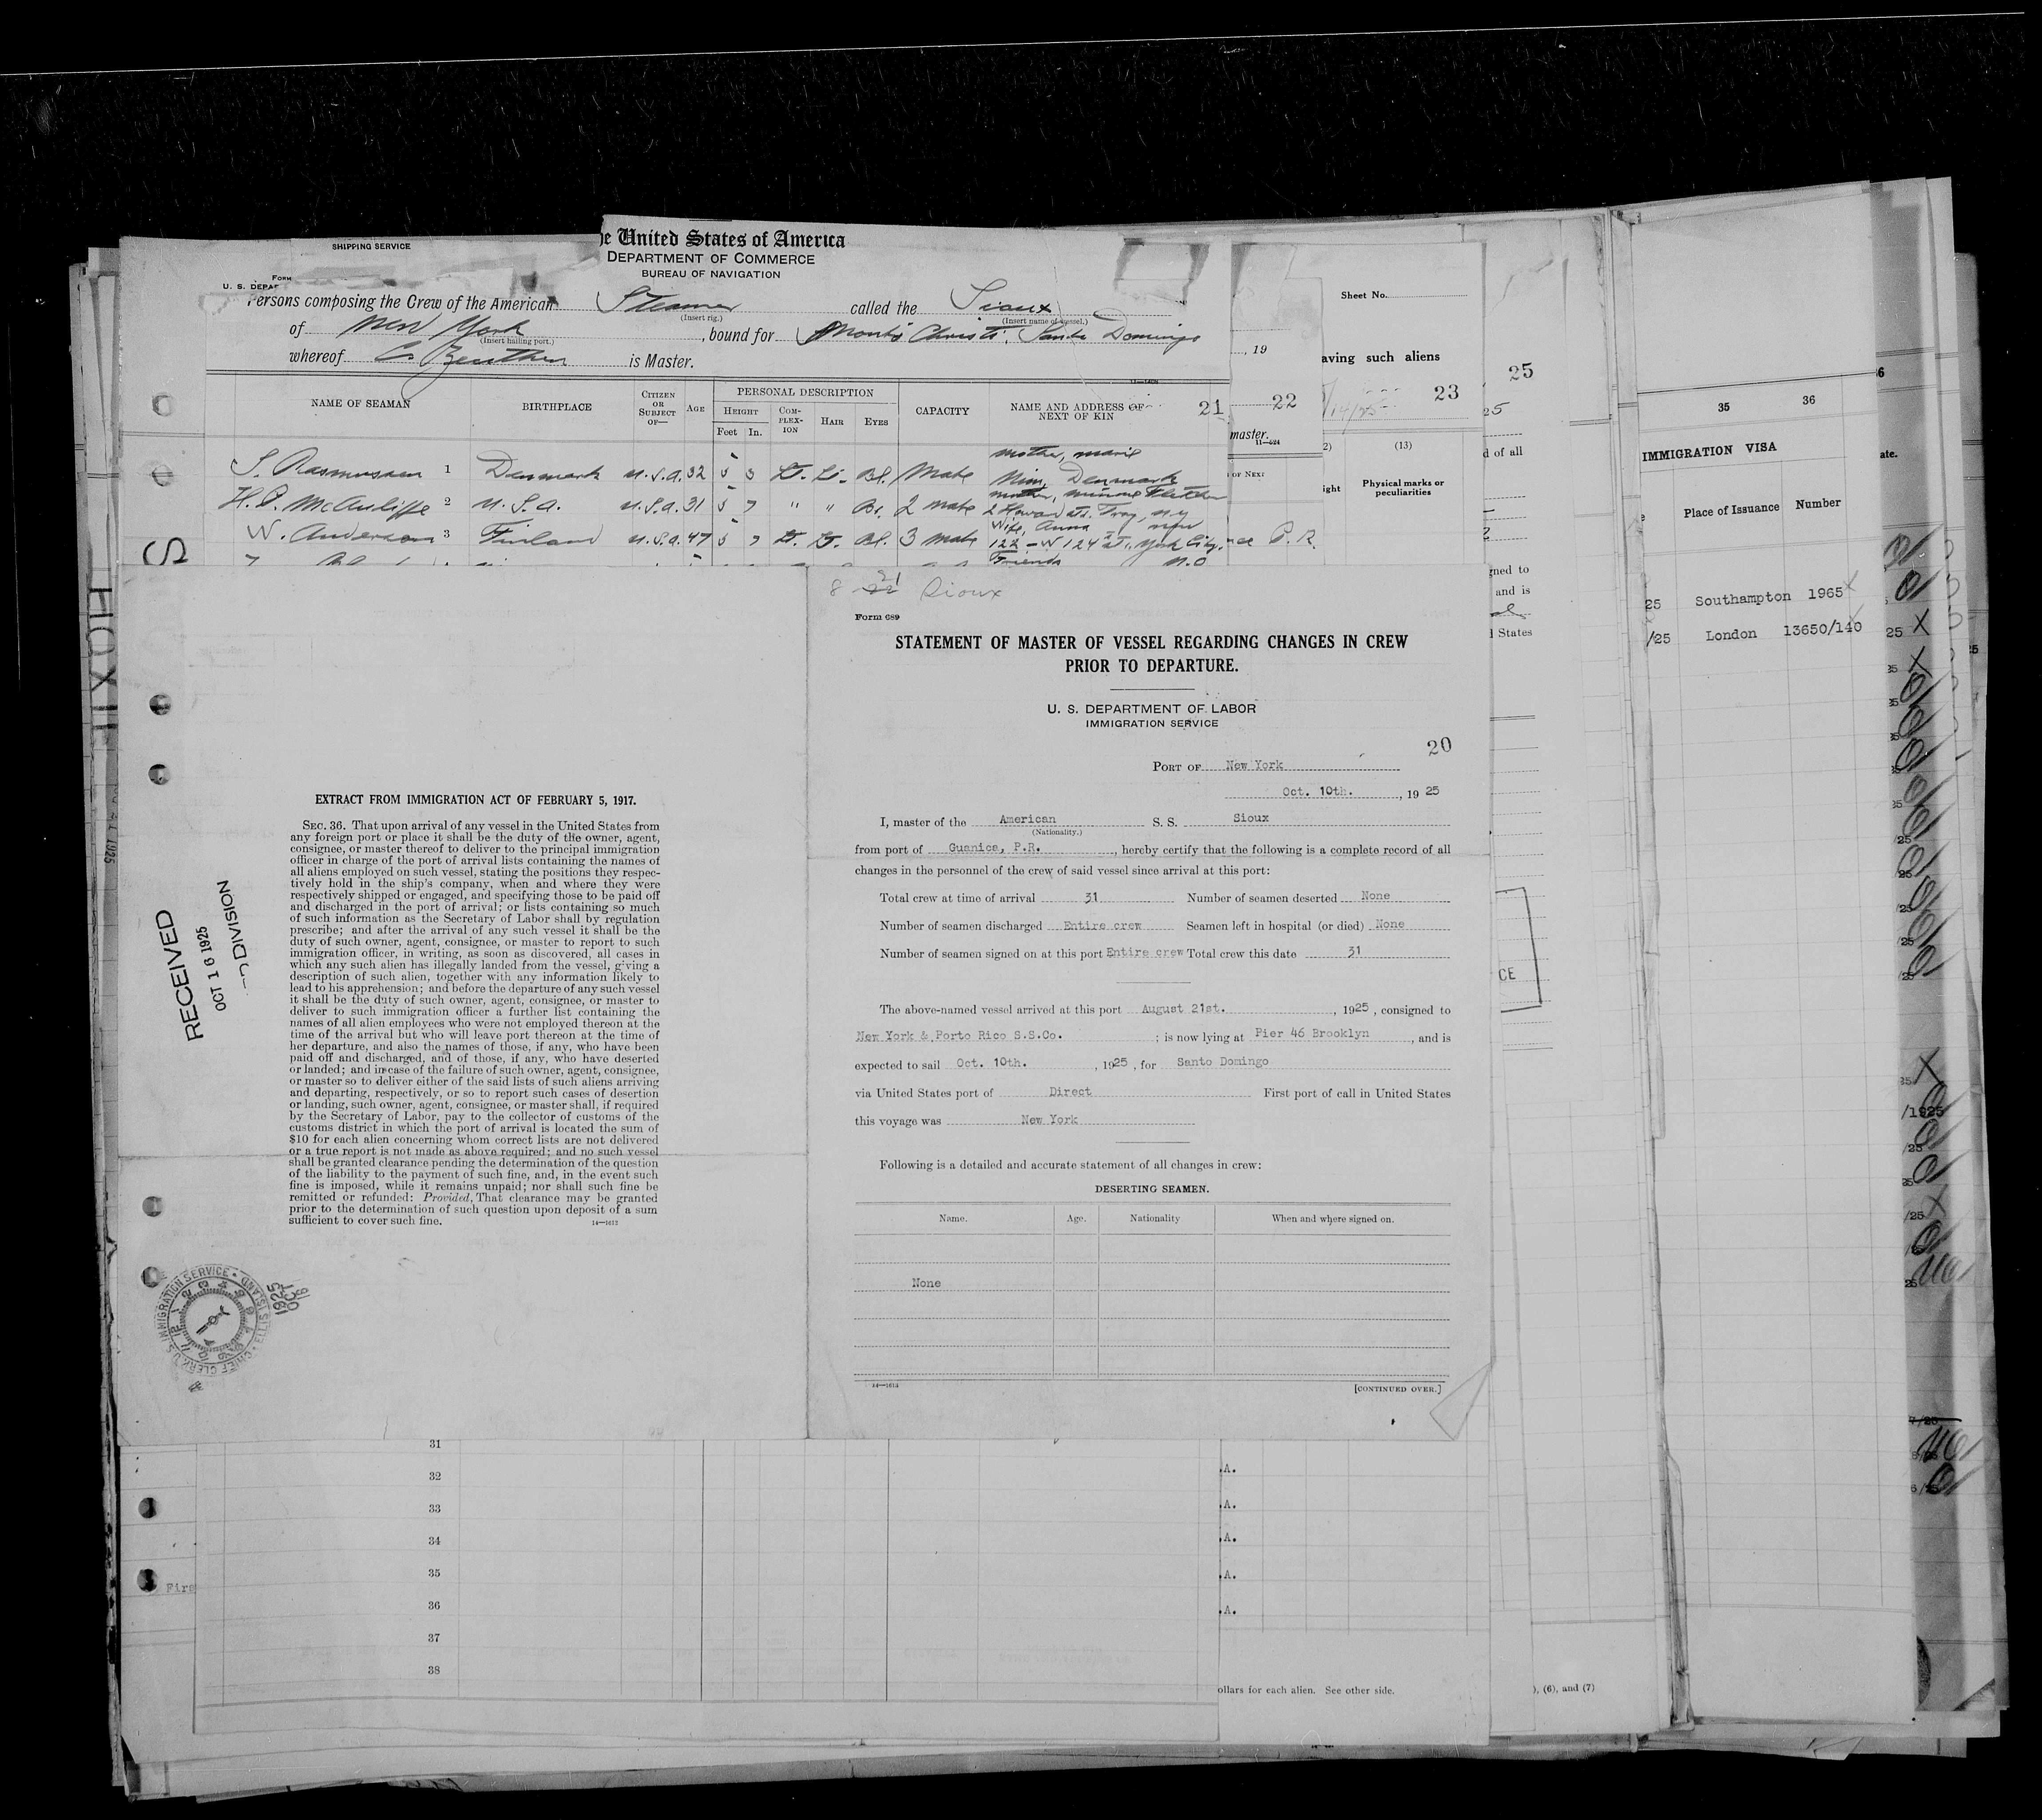 SHIPPING SERVICE
Form
U. S. DEPAR
he United States of America
DEPARTMENT OF COMMERCE
BUREAU OF NAVIGATION
Persons composing the Crew of the American Steamer called the Sioux
(Insert rig.) (Insert name of vessel.)
of New York, bound for Monti Christi, Santo Domingo
(Insert hailing port.)
whereof C. is Master.
11—1404
NAME OF SEAMAN BIRTHPLACE CITIZEN OR SUBJECT OF— AGE PERSONAL DESCRIPTION CAPACITY NAME AND ADDRESS OF NEXT OF KIN 21
HEIGHT COMPLEX-ION HAIR EYES
Feet In.
S. Rasmussen 1 Denmark U.S.A. 32 5 3 Lt. Lt. Bl. Mate mother, marie
Denmark
H. McAuliffe 2 U.S.A. U.S.A. 31 5 7 " " Br. 2 mate mother, minnie Fletcher
2 Howard St. Troy, N.Y
W. Anderson 3 Finland U.S.A. 47 5 7 Lt. Lt. Bl. 3 mate Wife, Anna
122 - W 124 St., New York City.
Friends
, 19
22
master.
11—624
OF NEXT
P. R.
Sheet No.
aving such aliens
23
2) (13)
ight Physical marks or peculiarities
25
25
d of all
gned to
and is
d States
35 36
IMMIGRATION VISA
Place of Issuance Number
25 Southampton 1965
/25 London 13650/140
6
ate.
25
HOXIE
RECEIVED
OCT 16 1925
DIVISION
EXTRACT FROM IMMIGRATION ACT OF FEBRUARY 5, 1917.
SEC. 36. That upon arrival of any vessel in the United States from
any foreign port or place it shall be the duty of the owner, agent,
consignee, or master thereof to deliver to the principal immigration
officer in charge of the port of arrival lists containing the names of
all aliens employed on such vessel, stating the positions they respec-
tively hold in the ship's company, when and where they were
respectively shipped or engaged, and specifying those to be paid off
and discharged in the port of arrival; or lists containing so much
of such information as the Secretary of Labor shall by regulation
prescribe; and after the arrival of any such vessel it shall be the
duty of such owner, agent, consignee, or master to report to such
immigration officer, in writing, as soon as discovered, all cases in
which any such alien has illegally landed from the vessel, giving a
description of such alien, together with any information likely to
lead to his apprehension; and before the departure of any such vessel
it shall be the duty of such owner, agent, consignee, or master to
deliver to such immigration officer a further list containing the
names of all alien employees who were not employed thereon at the
time of the arrival but who will leave port thereon at the time of
her departure, and also the names of those, if any, who have been
paid off and discharged, and of those, if any, who have deserted
or landed; and in case of the failure of such owner, agent, consignee,
or master so to deliver either of the said lists of such aliens arriving
and departing, respectively, or so to report such cases of desertion
or landing, such owner, agent, consignee, or master shall, if required
by the Secretary of Labor, pay to the collector of customs of the
customs district in which the port of arrival is located the sum of
$10 for each alien concerning whom correct lists are not delivered
or a true report is not made as above required; and no such vessel
shall be granted clearance pending the determination of the question
of the liability to the payment of such fine, and, in the event such
fine is imposed, while it remains unpaid; nor shall such fine be
remitted or refunded: Provided, That clearance may be granted
prior to the determination of such question upon deposit of a sum
sufficient to cover such fine.
14—1612
CHIEF CLERK U.S. IMMIGRATION SERVICE • ELLIS ISLAND
1925 OCT 16
8 21 Sioux
Form 689
STATEMENT OF MASTER OF VESSEL REGARDING CHANGES IN CREW
PRIOR TO DEPARTURE.
U. S. DEPARTMENT OF LABOR
IMMIGRATION SERVICE
20
PORT OF New York
Oct. 10th., 1925
I, master of the American S. S. Sioux
(Nationality.)
from port of Guanica, P.R., hereby certify that the following is a complete record of all
changes in the personnel of the crew of said vessel since arrival at this port:
Total crew at time of arrival 31 Number of seamen deserted None
Number of seamen discharged Entire crew Seamen left in hospital (or died) None
Number of seamen signed on at this port Entire crew Total crew this date 31
The above-named vessel arrived at this port August 21st., 1925, consigned to
New York & Porto Rico S.S.Co.; is now lying at Pier 46 Brooklyn, and is
expected to sail Oct. 10th., 1925, for Santo Domingo
via United States port of Direct First port of call in United States
this voyage was New York
Following is a detailed and accurate statement of all changes in crew:
DESERTING SEAMEN.
Name. Age. Nationality When and where signed on.
None
14—1612
[CONTINUED OVER.]
CE
31
32
33
34
35
36
37
38
Fire
.A.
.A.
.A.
.A.
.A.
ollars for each alien. See other side.
), (6), and (7)
/1925